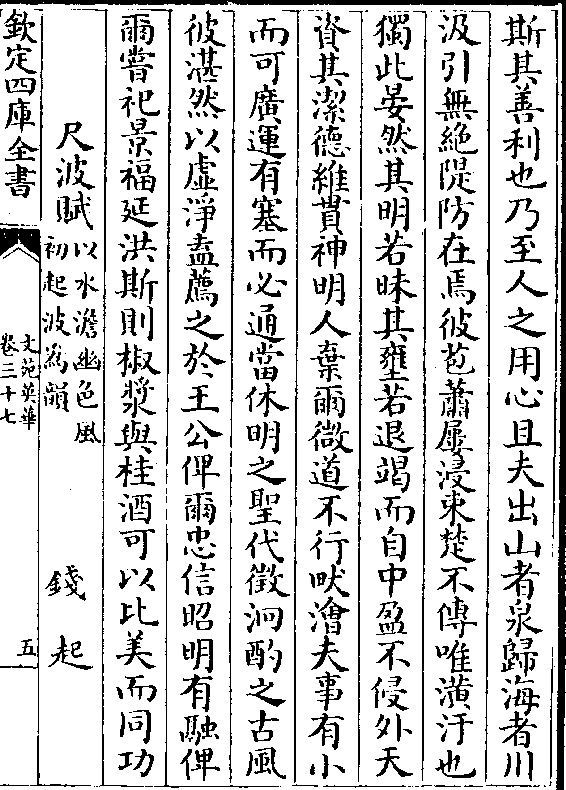 斯其善利也乃至人之用心且夫出山者泉歸海者川
汲引無絶隄防在焉彼苞蕭屢浸束楚不傳唯潢汙也
獨此晏然其明若昧其壅若退竭而自中盈不侵外天
資其潔德維貫神明人棄爾微道不行畎澮夫事有小
而可廣運有塞而必通當休明之聖代徵泂酌之古風
彼湛然以虛淨盍薦之於王公俾爾忠信昭明有融俾
爾嘗祀景福延洪斯則椒漿與桂酒可以比美而同功
尺波賦 以水澹幽色風初起波為韻 錢起
欽定四庫全書 文苑英華 卷三十七 五